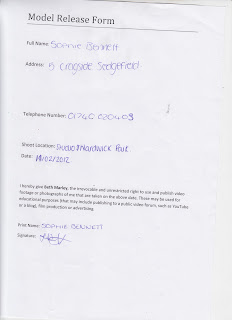 Model Release Form
Full Name: Sophie Bennett
Address: 5 Cragside Sedgefield
Telephone Number: 01740 620403
Shoot Location: Hardwick Park
Date: 19/02/2012
I hereby give Beth Marley, the irrevocable and unrestricted right to use and publish video
footage or photographs of me that are taken on the above date. These may be used for
educational purposes (that may include publishing to a public video forum, such as YouTube
or a blog), film production or advertising.
Print Name: SOPHIE BENNETT
Signature: